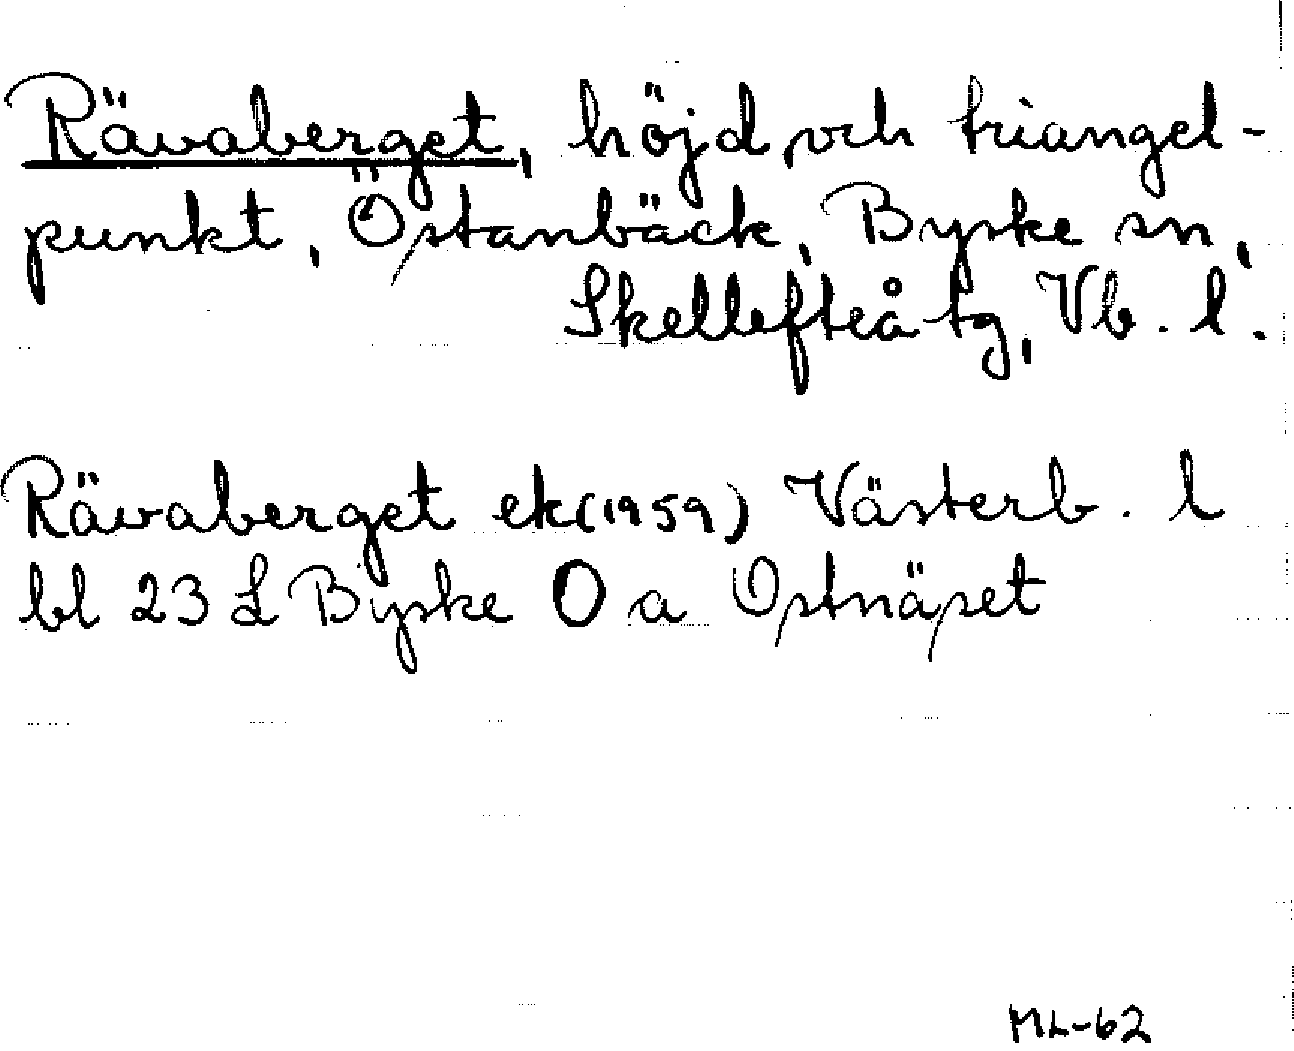 Rävaberget, höjd och triangel-
punkt, Östanbäck, Byske sn,
Skellefteå tg, Vb. l.
Rävaberget ek (1959) Västerb. l
bl 23 L Byske O a Ostnäset
ML-62